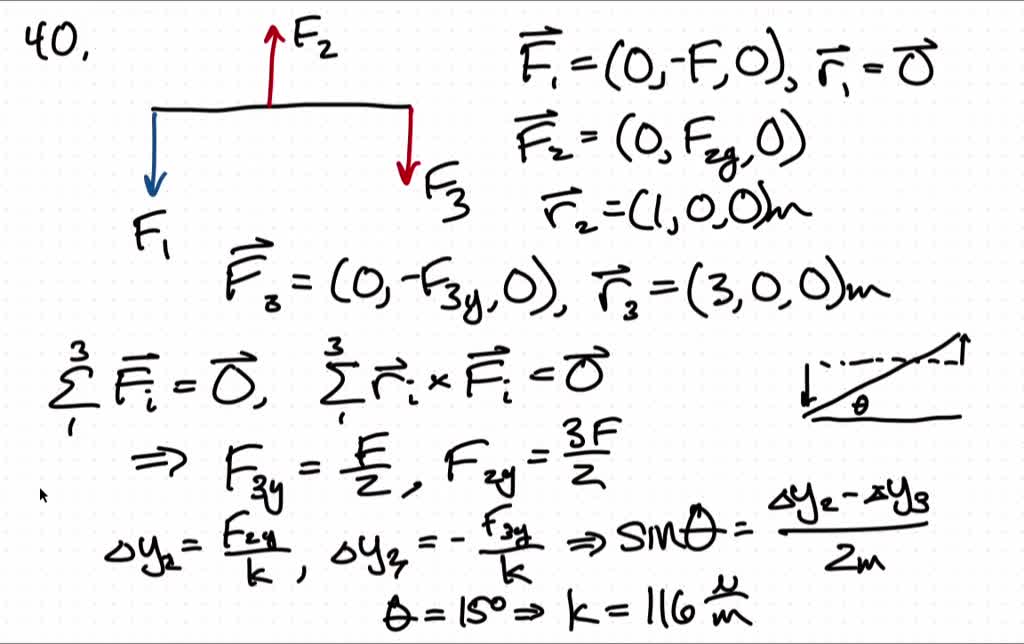 40.
F₂
F₁
F₃
F⃗₁ = (0, -F, 0), r⃗₁ = 0⃗
F⃗₂ = (0, F₂y, 0)
r⃗₂ = (1, 0, 0)m
F⃗₃ = (0, -F₃y, 0), r⃗₃ = (3, 0, 0)m
3 Σ 1 F⃗ᵢ = 0⃗, 3 Σ 1 r⃗ᵢ × F⃗ᵢ = 0⃗
θ
⇒ F₃y = F/2, F₂y = 3F/2
Δy₂ = F₂y/k, Δy₃ = -F₃y/k ⇒ sinθ = (Δy₂ - Δy₃)/2m
θ = 15° ⇒ k = 116 N/m